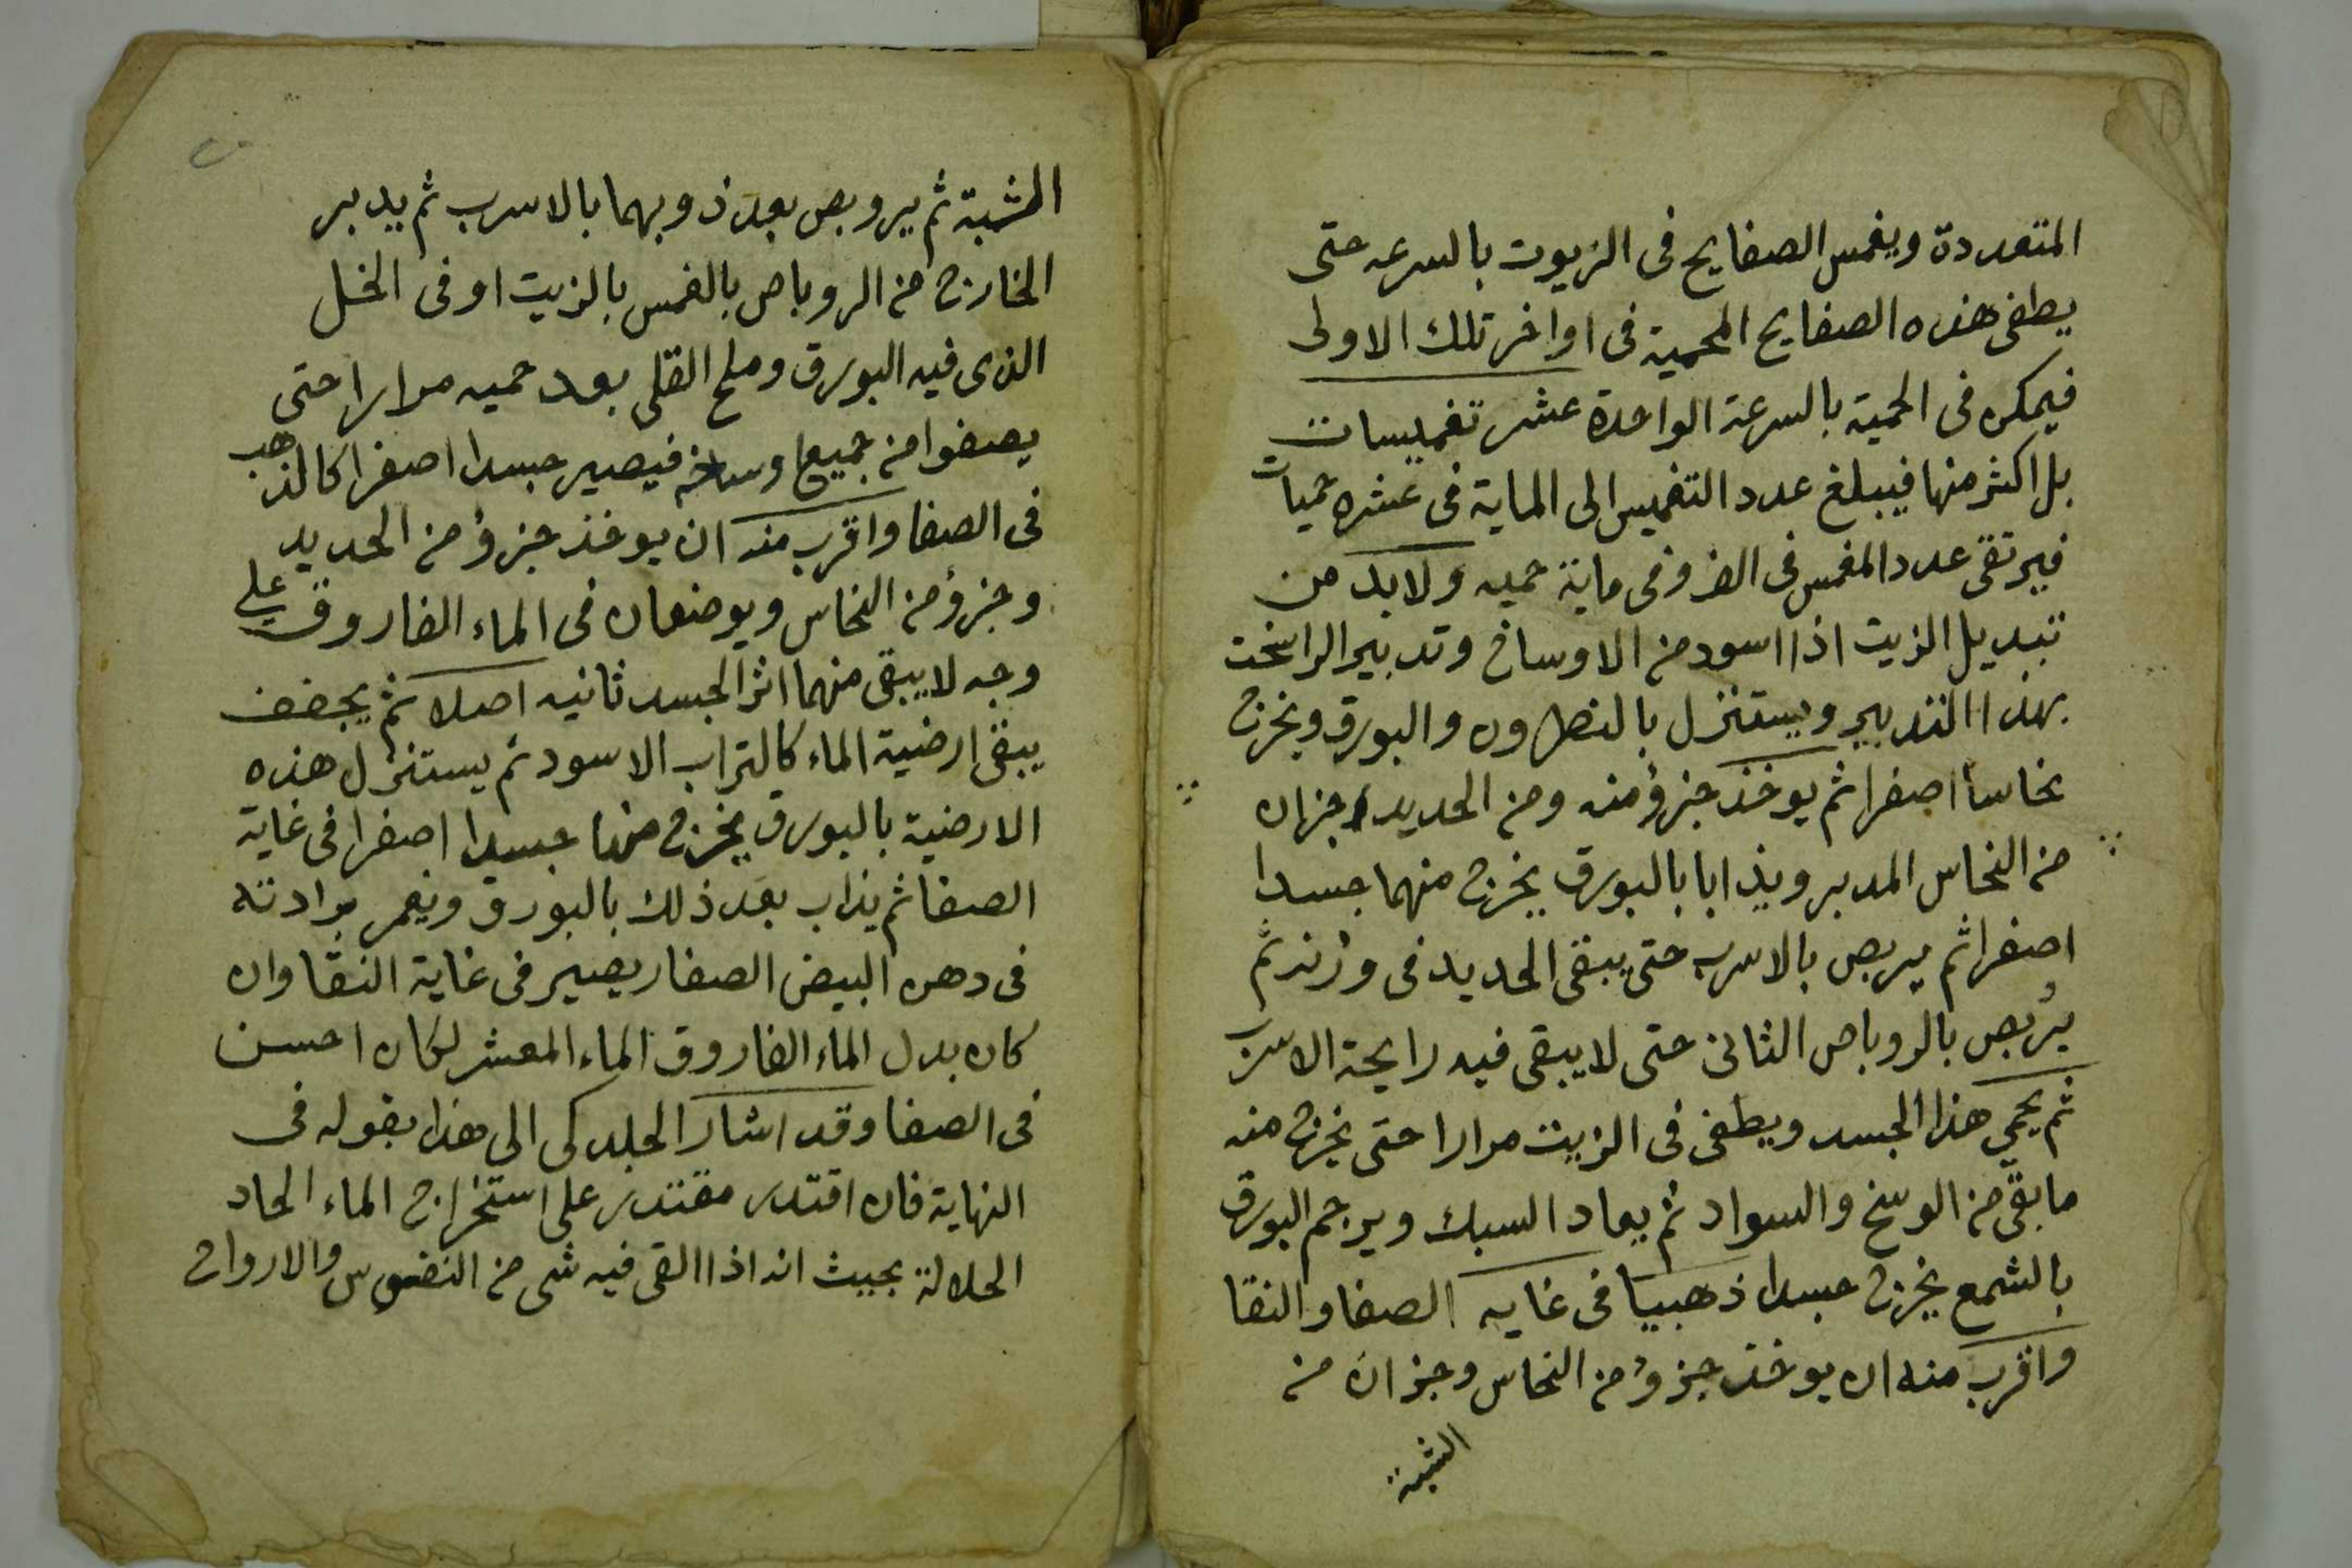 المتعددة ويغمس الصفايح فى الزيوت بالسرعه حتى
يطفى هذه الصفايح المحمية فى اواخر تلك الاولى
فيمكن فى الحمية بالسرعة الواحدة عشر تغميسات
بل اكثر منها فيبلغ عدد التغميس الى الماية فى عشره حميات
فيرتقى عدد المغمس فى الف وفى ماية حميه ولابد من
تبديل الزيت اذا اسود من الاوساخ وتدبير الراسخت
بهذا التدبير ويستنزل بالنطرون والبورق ويخرج
نحاسا اصفرا ثم يوخذ جزؤ منه ومن الحديد جزان
من النحاس المدبر ويذابا بالبورق يخرج منهما جسدا
اصفرا ثم يربص بالاسرب حتى يبقى الحديد فى وزنه ثم
يُربص بالروباص الثانى حتى لا يبقى فيه رايحة الاسرب
ثم يحمى هذا الجسد ويطفى فى الزيت مرارا حتى يخرج منه
ما بقّى من الوسخ والسواد ثم يعاد السبك ويرجم البورق
بالشمع يخرج جسدا ذهبيا فى غايه الصفا والنقا
واقرب منه ان يوخذ جزؤ من النحاس وجزان من
الشبة
المشبة ثم يروبص بعد ذوبهما بالاسرب ثم يدبر
الخارج من الروباص بالغمس بالزيت او فى الخل
الذى فيه البورق وملح القلى بعد حميه مرارا حتى
يصفوا من جميع اوساخه فيصير جسدا اصفرا كالذهب
فى الصفا واقرب منه ان يوخذ جزؤ من الحديد
وجزؤ من النحاس ويوضعان فى الماء الفاروق على
وجه لا يبقى منهما اثر الجسد ثانيه اصلا ثم يجفف
يبقى ارضية الماء كالتراب الاسود ثم يستنزل هذه
الارضية بالبورق يخرج منها جسدا اصفرا فى غاية
الصفا ثم يذاب بعد ذلك بالبورق ويغمر برادته
فى دهن البيض الصفار يصير فى غاية النقا وان
كان بدل الماء الفاروق الماء المعشر لكان احسن
فى الصفا وقد اشار الجلدكى الى هذا بقوله فى
النهاية فان اقتدر مقتدر على استخراج الماء الحاد
الحلالة بحيث انه اذا القى فيه شى من النفوس والارواح